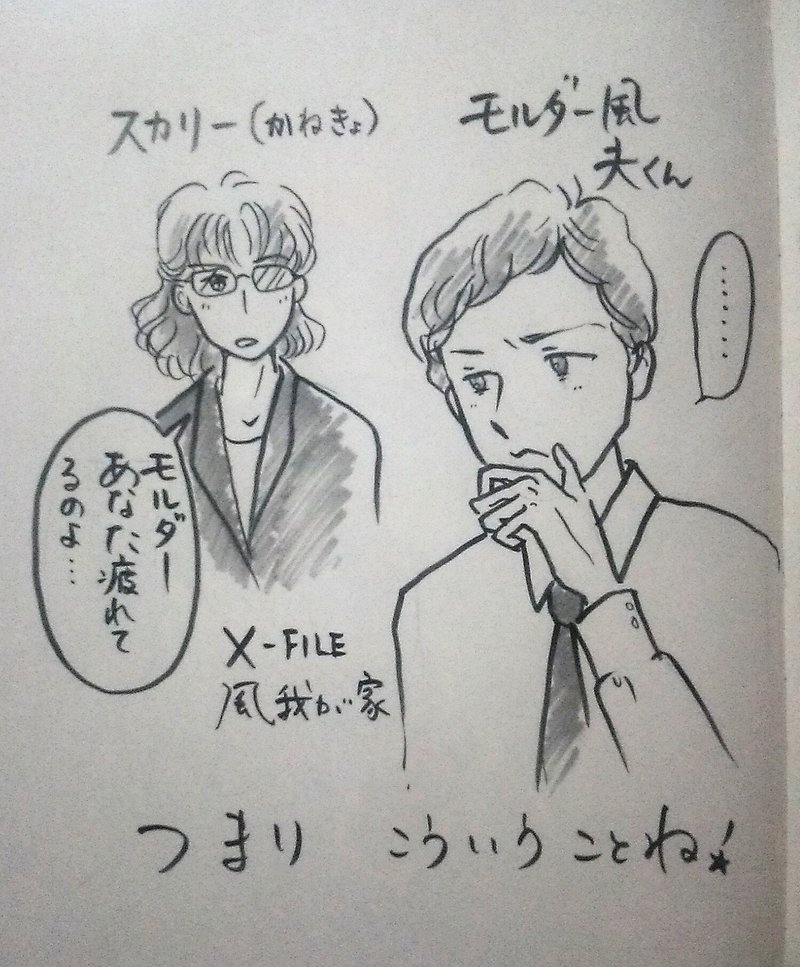 スカリー(かねきょ)
モルダー風
夫くん
………
モルダー
あなた疲れて
るのよ…
X-FILE
風我が家
つまり こういうことね!